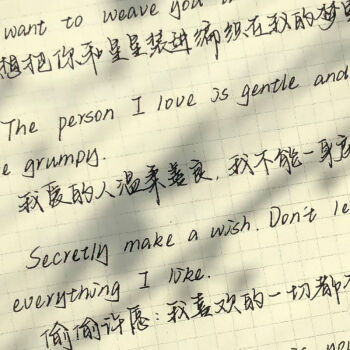 want to weave you
想把你和星星装进编织在我的梦里
The person I love is gentle and
e grumpy.
我爱的人温柔善良,我不能一身
Secretly make a wish. Don't le
everything I like.
偷偷许愿:我喜欢的一切都